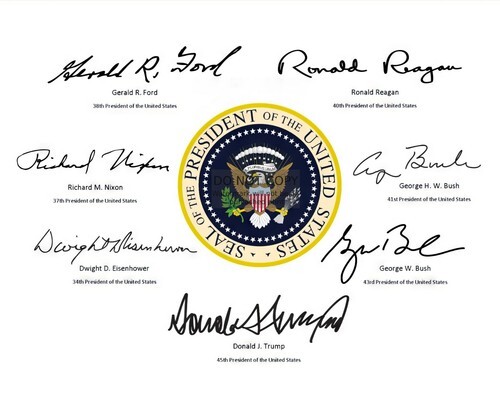 Gerald R. Ford
Gerald R. Ford
38th President of the United States
Ronald Reagan
Ronald Reagan
40th President of the United States
Richard Nixon
Richard M. Nixon
37th President of the United States
SEAL OF THE PRESIDENT OF THE UNITED STATES
DO NOT COPY
G Bush
George H. W. Bush
41st President of the United States
Dwight D Eisenhower
Dwight D. Eisenhower
34th President of the United States
George W. Bush
43rd President of the United States
Donald J. Trump
45th President of the United States